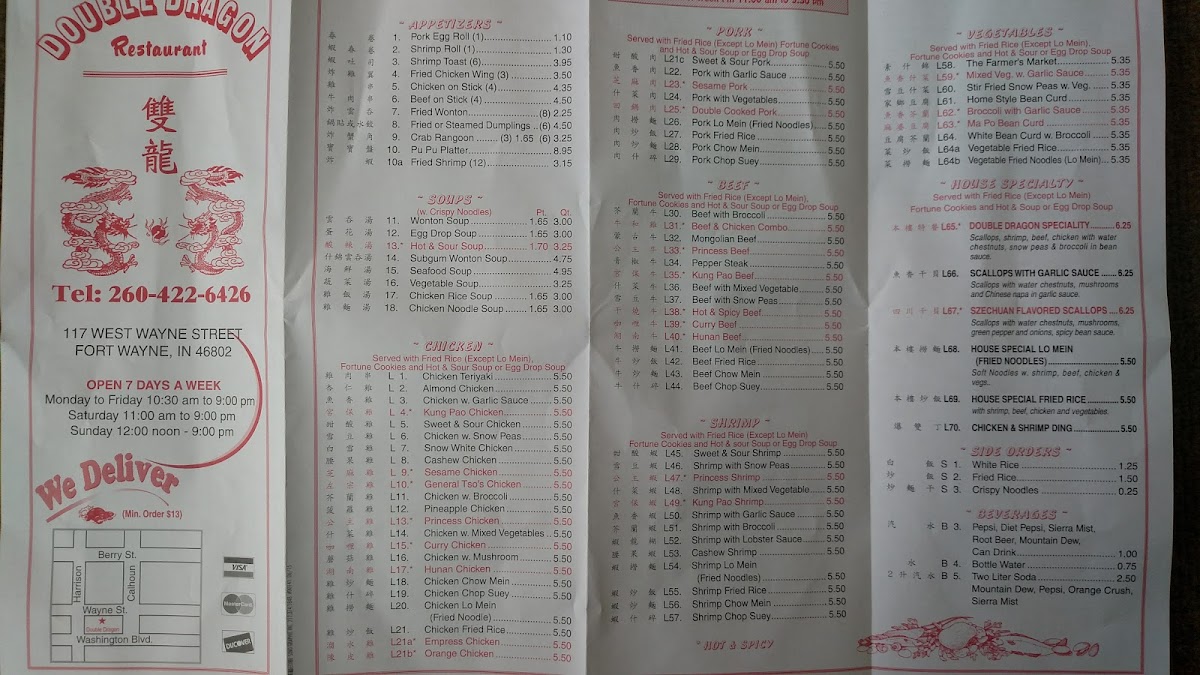 DOUBLE DRAGON
Restaurant
雙
龍
Tel: 260-422-6426
117 WEST WAYNE STREET
FORT WAYNE, IN 46802
OPEN 7 DAYS A WEEK
Monday to Friday 10:30 am to 9:00 pm
Saturday 11:00 am to 9:00 pm
Sunday 12:00 noon - 9:00 pm
We Deliver
(Min. Order $13)
Berry St.
Harrison
Calhoun
Wayne St.
Double Dragon
Washington Blvd.
VISA
MasterCard
DISCOVER
~ APPETIZERS ~
春卷 1. Pork Egg Roll (1) 1.10
蝦春卷 2. Shrimp Roll (1) 1.30
蝦吐司 3. Shrimp Toast (6) 3.95
炸雞翼 4. Fried Chicken Wing (3) 3.50
雞串 5. Chicken on Stick (4) 4.35
牛肉串 6. Beef on Stick (4) 4.50
炸雲吞 7. Fried Wonton (8) 2.25
鍋貼或水餃 8. Fried or Steamed Dumplings (6) 4.50
炸蟹角 9. Crab Rangoon (3) 1.65 (6) 3.25
寶寶盤 10. Pu Pu Platter 8.95
炸蝦 10a Fried Shrimp (12) 3.15
~ SOUPS ~
(w. Crispy Noodles) Pt. Qt.
雲吞湯 11. Wonton Soup 1.65 3.00
蛋花湯 12. Egg Drop Soup 1.65 3.00
酸辣湯 13.* Hot & Sour Soup 1.70 3.25
什錦雲吞湯 14. Subgum Wonton Soup 4.75
海鮮湯 15. Seafood Soup 4.95
蔬菜湯 16. Vegetable Soup 3.25
雞飯湯 17. Chicken Rice Soup 1.65 3.00
雞麵湯 18. Chicken Noodle Soup 1.65 3.00
~ CHICKEN ~
Served with Fried Rice (Except Lo Mein),
Fortune Cookies and Hot & Sour Soup or Egg Drop Soup
雞肉串 L 1. Chicken Teriyaki 5.50
杏仁雞 L 2. Almond Chicken 5.50
魚香雞 L 3. Chicken w. Garlic Sauce 5.50
宮保雞 L 4.* Kung Pao Chicken 5.50
甜酸雞 L 5. Sweet & Sour Chicken 5.50
雪豆雞 L 6. Chicken w. Snow Peas 5.50
白雪雞 L 7. Snow White Chicken 5.50
腰果雞 L 8. Cashew Chicken 5.50
芝麻雞 L 9.* Sesame Chicken 5.50
左宗雞 L10.* General Tao's Chicken 5.50
芥蘭雞 L11. Chicken w. Broccoli 5.50
菠蘿雞 L12. Pineapple Chicken 5.50
公主雞 L13.* Princess Chicken 5.50
什菜雞 L14. Chicken w. Mixed Vegetables 5.50
咖哩雞 L15.* Curry Chicken 5.50
蘑菇雞 L16. Chicken w. Mushroom 5.50
湖南雞 L17.* Hunan Chicken 5.50
雞炒麵 L18. Chicken Chow Mein 5.50
雞什碎 L19. Chicken Chop Suey 5.50
雞撈麵 L20. Chicken Lo Mein
(Fried Noodle) 5.50
雞炒飯 L21. Chicken Fried Rice 5.50
湖水雞 L21a* Empress Chicken 5.50
陳皮雞 L21b* Orange Chicken 5.50
~ PORK ~
Served with Fried Rice (Except Lo Mein) Fortune Cookies
and Hot & Sour Soup or Egg Drop Soup
甜酸肉 L21c Sweet & Sour Pork 5.50
魚香肉 L22. Pork with Garlic Sauce 5.50
芝麻肉 L23.* Sesame Pork 5.50
什菜肉 L24. Pork with Vegetables 5.50
回鍋肉 L25.* Double Cooked Pork 5.50
肉撈麵 L26. Pork Lo Mein (Fried Noodles) 5.50
肉炒飯 L27. Pork Fried Rice 5.50
肉炒麵 L28. Pork Chow Mein 5.50
肉什碎 L29. Pork Chop Suey 5.50
~ BEEF ~
Served with Fried Rice (Except Lo Mein),
Fortune Cookies and Hot & Sour Soup or Egg Drop Soup
芥蘭牛 L30. Beef with Broccoli 5.50
L31.* Beef & Chicken Combo 5.50
蒙古牛 L32. Mongolian Beef 5.50
公主牛 L33.* Princess Beef 5.50
青椒牛 L34. Pepper Steak 5.50
宮保牛 L35.* Kung Pao Beef 5.50
什菜牛 L36. Beef with Mixed Vegetable 5.50
雪豆牛 L37. Beef with Snow Peas 5.50
干燒牛 L38.* Hot & Spicy Beef 5.50
咖哩牛 L39.* Curry Beef 5.50
湖南牛 L40.* Hunan Beef 5.50
牛撈麵 L41. Beef Lo Mein (Fried Noodles) 5.50
牛炒飯 L42. Beef Fried Rice 5.50
牛炒麵 L43. Beef Chow Mein 5.50
牛什碎 L44. Beef Chop Suey 5.50
~ SHRIMP ~
Served with Fried Rice (Except Lo Mein)
Fortune Cookies and Hot & sour Soup or Egg Drop Soup
甜酸蝦 L45. Sweet & Sour Shrimp 5.50
雪豆蝦 L46. Shrimp with Snow Peas 5.50
公主蝦 L47.* Princess Shrimp 5.50
什菜蝦 L48. Shrimp with Mixed Vegetable 5.50
宮保蝦 L49.* Kung Pao Shrimp 5.50
魚香蝦 L50. Shrimp with Garlic Sauce 5.50
芥蘭蝦 L51. Shrimp with Broccoli 5.50
蝦龍糊 L52. Shrimp with Lobster Sauce 5.50
腰果蝦 L53. Cashew Shrimp 5.50
蝦撈麵 L54. Shrimp Lo Mein
(Fried Noodles) 5.50
蝦炒飯 L55. Shrimp Fried Rice 5.50
蝦炒麵 L56. Shrimp Chow Mein 5.50
蝦什碎 L57. Shrimp Chop Suey 5.50
* HOT & SPICY
~ VEGETABLES ~
Served with Fried Rice (Except Lo Mein),
Fortune Cookies and Hot & Sour Soup or Egg Drop Soup
素什錦 L58. The Farmer's Market 5.35
魚香什菜 L59.* Mixed Veg. w. Garlic Sauce 5.35
雪豆什菜 L60. Stir Fried Snow Peas w. Veg. 5.35
家鄉豆腐 L61. Home Style Bean Curd 5.35
魚香芥蘭 L62.* Broccoli with Garlic Sauce 5.35
麻婆豆腐 L63.* Ma Po Bean Curd 5.35
豆腐芥蘭 L64. White Bean Curd w. Broccoli 5.35
菜炒飯 L64a Vegetable Fried Rice 5.35
菜撈麵 L64b Vegetable Fried Noodles (Lo Mein) 5.35
~ HOUSE SPECIALTY ~
Served with Fried Rice (Except Lo Mein)
Fortune Cookies and Hot & Sour Soup or Egg Drop Soup
本樓特餐 L65.* DOUBLE DRAGON SPECIALTY 6.25
Scallops, shrimp, beef, chicken with water
chestnuts, snow peas & broccoli in bean
sauce.
魚香干貝 L66. SCALLOPS WITH GARLIC SAUCE 6.25
Scallops with water chestnuts, mushrooms
and Chinese napa in garlic sauce.
四川干貝 L67.* SZECHUAN FLAVORED SCALLOPS 6.25
Scallops with water chestnuts, mushrooms,
green pepper and onions, spicy bean sauce.
本樓撈麵 L68. HOUSE SPECIAL LO MEIN
(FRIED NOODLES) 5.50
Soft Noodles w. shrimp, beef, chicken &
vegs.
本樓炒飯 L69. HOUSE SPECIAL FRIED RICE 5.50
with shrimp, beef, chicken and vegetables.
爆雙丁 L70. CHICKEN & SHRIMP DING 5.50
~ SIDE ORDERS ~
白飯 S 1. White Rice 1.25
炒飯 S 2. Fried Rice 1.50
炒麵干 S 3. Crispy Noodles 0.25
~ BEVERAGES ~
汽水 B 3. Pepsi, Diet Pepsi, Sierra Mist,
Root Beer, Mountain Dew,
Can Drink 1.00
水 B 4. Bottle Water 0.75
2升汽水 B 5. Two Liter Soda 2.50
Mountain Dew, Pepsi, Orange Crush,
Sierra Mist